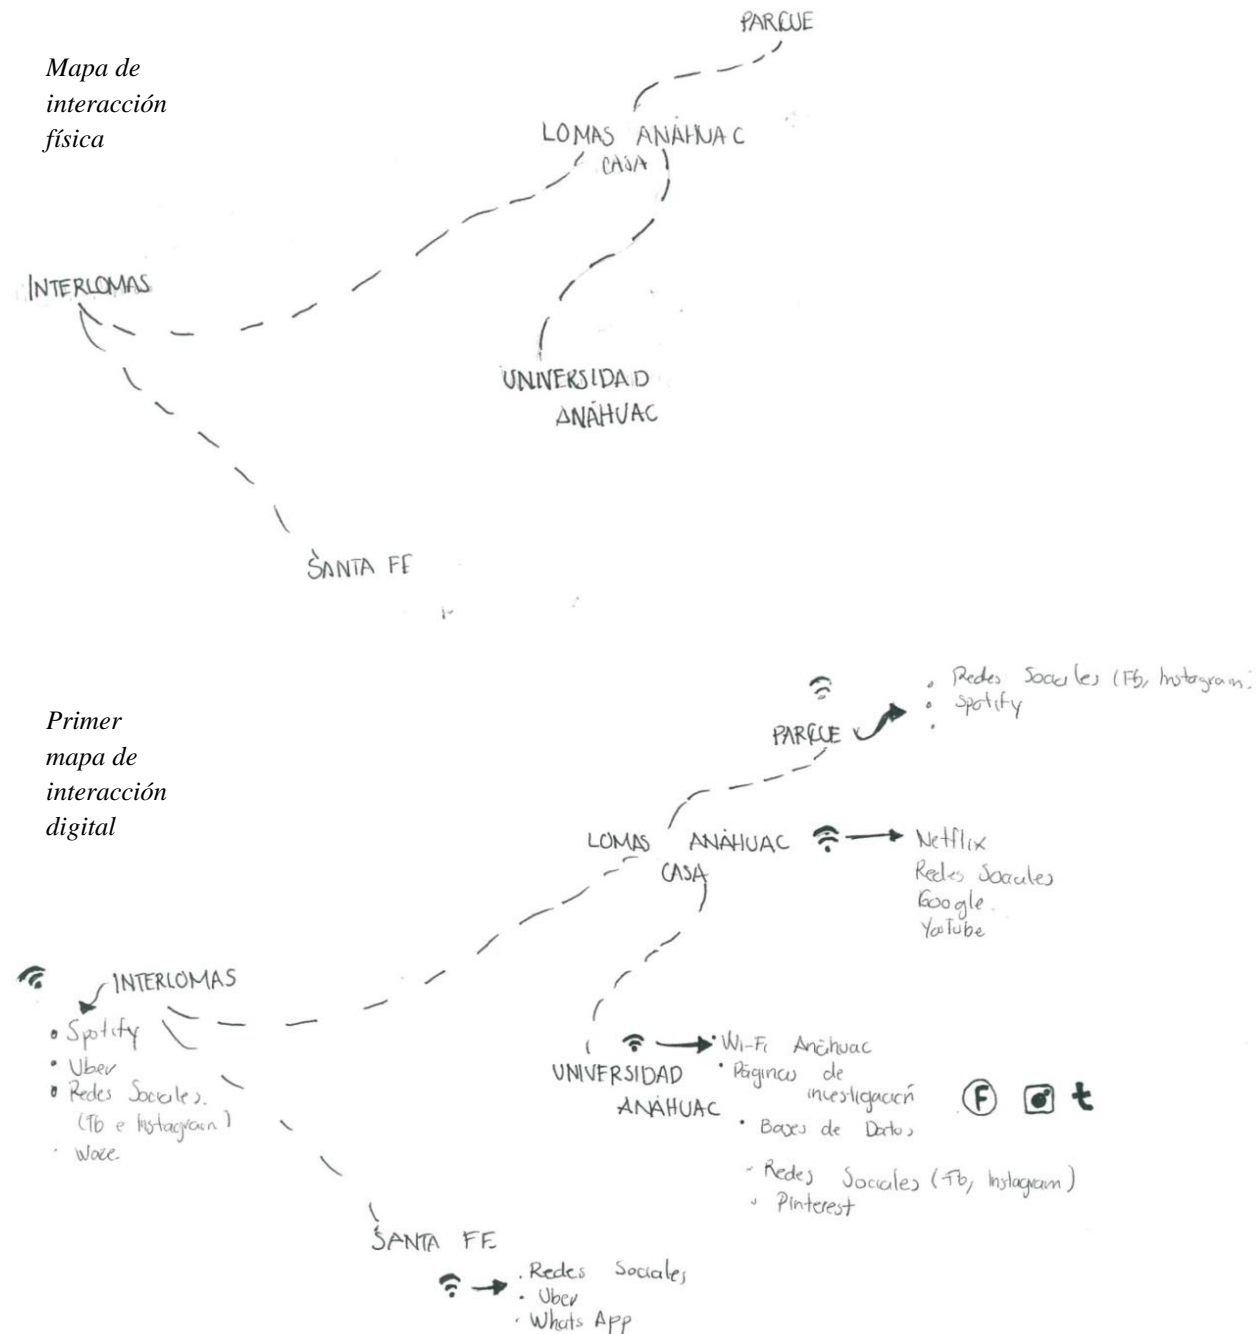 Mapa de
interacción
física
PARQUE
LOMAS ANÁHUAC
CASA
INTERLOMAS
UNIVERSIDAD
ANÁHUAC
SANTA FE
Primer
mapa de
interacción
digital
PARQUE
• Redes Sociales (Fb, Instagram.
• Spotify
•
LOMAS ANÁHUAC
CASA
Netflix
Redes Sociales
Google.
YouTube
INTERLOMAS
• Spotify
• Uber
• Redes Sociales.
(Fb e Instagram)
• Waze
UNIVERSIDAD
ANÁHUAC
• Wi-Fi Anáhuac
• Páginas de
investigación
• Bases de Datos
- Redes Sociales (Fb, Instagram)
• Pinterest
F t
SANTA FE
. Redes Sociales
• Uber
• Whats App